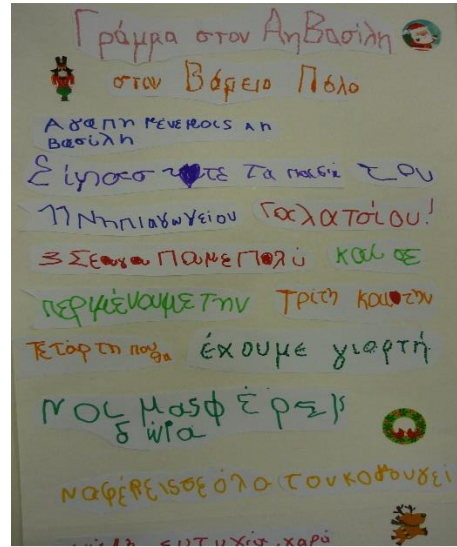 Γράμμα στον Αη Βασίλη
στον Βόρειο Πόλο
Αγαπη μενεμοις Αη
Βασίλη
Είμαστε τα παιδιά του
11 Νηπιαγωγείου Γαλατσίου!
3 Σε αγαπαμε Πολύ και σε
περιμένουμε την Τρίτη και την
Τετάρτη που θα έχουμε γιορτή
Να μας φέρεις
δώρα
Να φέρεις σε όλο τον κόσμο υγεί
ευτυχία, χαρά